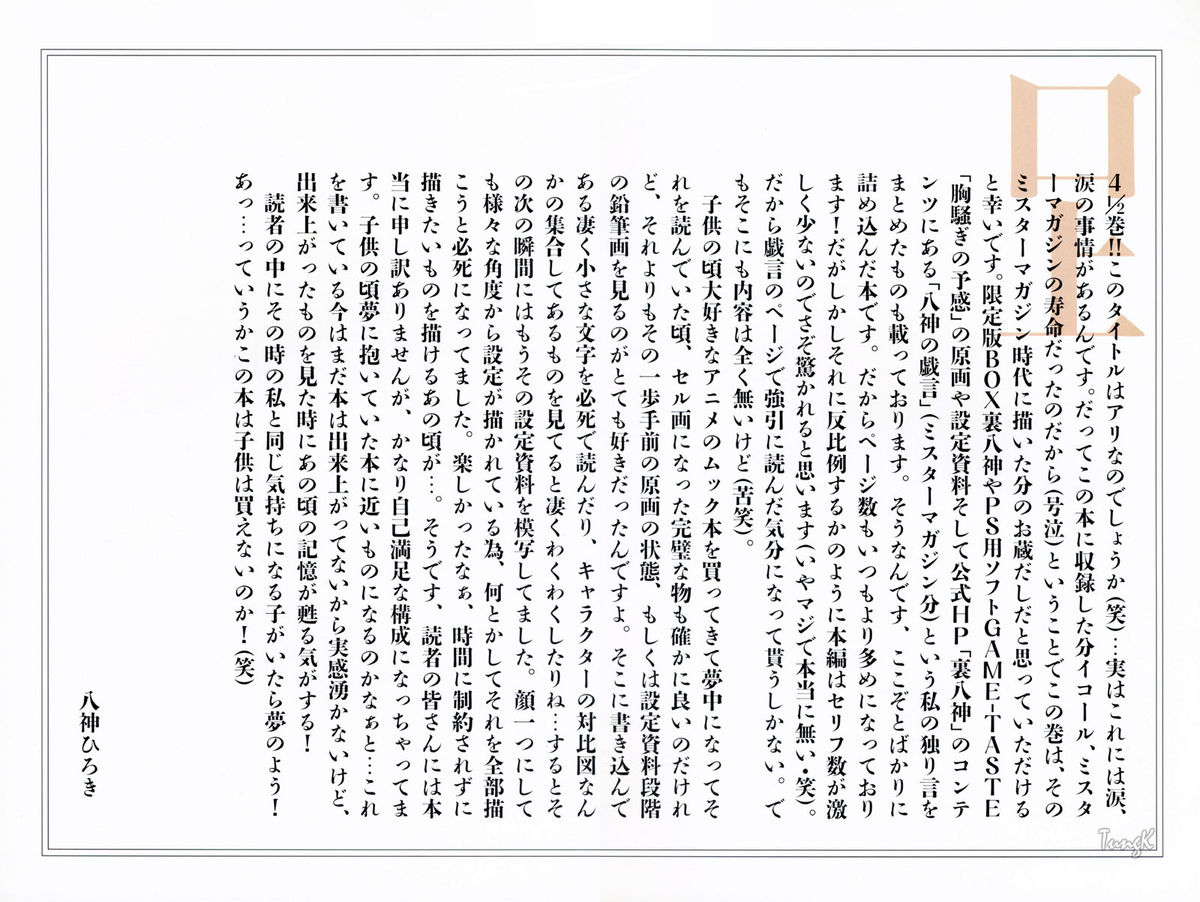 口上
4½巻!!このタイトルはアリなのでしょうか(笑)…実はこれには涙、
涙の事情があるんです。だってこの本に収録した分イコール、ミスタ
ーマガジンの寿命だったのだから(号泣)ということでこの巻は、その
ミスターマガジン時代に描いた分のお蔵だしだと思っていただける
と幸いです。限定版BOX裏八神やPS用ソフトGAME-TASTE
「胸騒ぎの予感」の原画や設定資料そして公式HP「裏八神」のコンテ
ンツにある「八神の戯言」(ミスターマガジン分)という私の独り言を
まとめたものも載っております。そうなんです、ここぞとばかりに
詰め込んだ本です。だからページ数もいつもより多めになっており
ます!だがしかしそれに反比例するかのように本編はセリフ数が激
しく少ないのでさぞ驚かれると思います(いやマジで本当に無い・笑)。
だから戯言のページで強引に読んだ気分になって貰うしかない。で
もそこにも内容は全く無いけど(苦笑)。
子供の頃大好きなアニメのムック本を買ってきて夢中になってそ
れを読んでいた頃、セル画になった完璧な物も確かに良いのだけれ
ど、それよりもその一歩手前の原画の状態、もしくは設定資料段階
の鉛筆画を見るのがとても好きだったんですよ。そこに書き込んで
ある凄く小さな文字を必死で読んだり、キャラクターの対比図なん
かの集合してあるものを見てると凄くわくわくしたりね…するとそ
の次の瞬間にはもうその設定資料を模写してました。顔一つにして
も様々な角度から設定が描かれている為、何とかしてそれを全部描
こうと必死になってました。楽しかったなぁ、時間に制約されずに
描きたいものを描けるあの頃が…。そうです、読者の皆さんには本
当に申し訳ありませんが、かなり自己満足な構成になっちゃってま
す。子供の頃夢に抱いていた本に近いものになるのかなぁと…これ
を書いている今はまだ本は出来上がってないから実感湧かないけど、
出来上がったものを見た時にあの頃の記憶が甦る気がする!
読者の中にその時の私と同じ気持ちになる子がいたら夢のよう!
あっ…っていうかこの本は子供は買えないのか!(笑)
八神ひろき
TungK